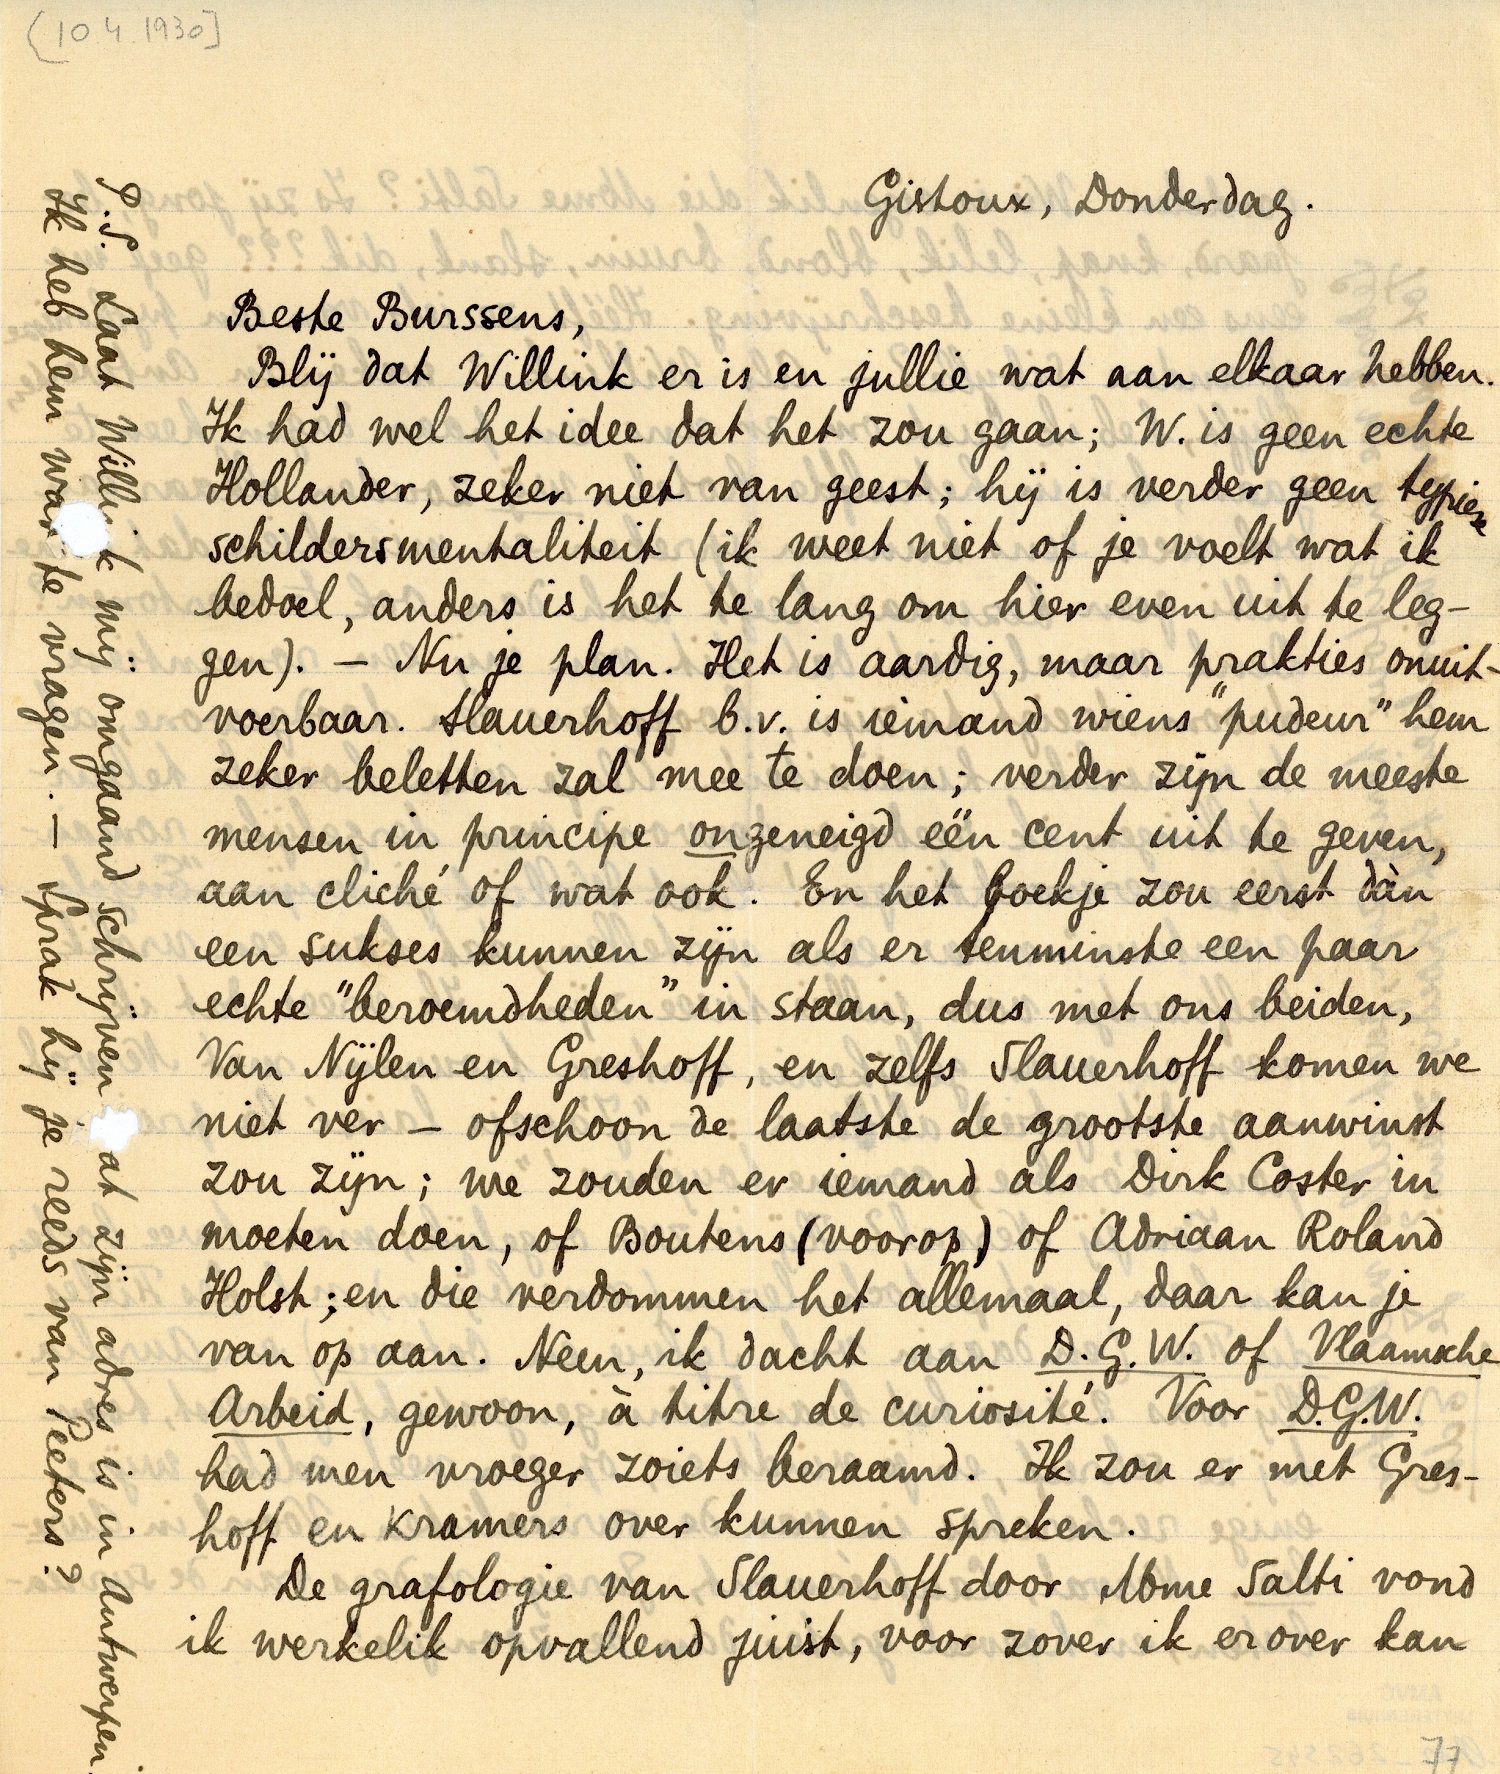 (10 4 1930]
Gistoux, Donderdag.
Beste Burssens,
Blij dat Willink er is en jullie wat aan elkaar hebben.
Ik had wel het idee dat het zou gaan; W. is geen echte
Hollander, zeker niet van geest; hij is verder geen typiese
schildersmentaliteit (ik weet niet of je voelt wat ik
bedoel, anders is het te lang om hier even uit te leg-
gen). — Nu je plan. Het is aardig, maar prakties onuit-
voerbaar. Slauerhoff b.v. is iemand wiens "pudeur" hem
zeker beletten zal mee te doen; verder zijn de meeste
mensen in principe ongeneigd één cent uit te geven,
aan cliché of wat ook. En het boekje zou eerst dàn
een sukses kunnen zijn als er tenminste een paar
echte "beroemdheden" in staan, dus met ons beiden,
Van Nijlen en Greshoff, en zelfs Slauerhoff komen we
niet ver — ofschoon de laatste de grootste aanwinst
zou zijn; we zouden er iemand als Dirk Coster in
moeten doen, of Boutens (voorop) of Adriaan Roland
Holst; en die verdommen het allemaal, daar kan je
van op aan. Neen, ik dacht aan D.G.W. of Vlaamsche
Arbeid, gewoon, à titre de curiosité. Voor D.G.W.
had men vroeger zoiets beraamd. Ik zou er met Gres-
hoff en Kramers over kunnen spreken.
De grafologie van Slauerhoff door Mme Salti vond
ik werkelik opvallend juist, voor zover ik erover kan
P.S. Laat Will k mij omgaand schrijven at zijn adres is in Antwerpen.
Ik heb hem wat te vragen. — Sprak hij je reeds van Peeters?
77